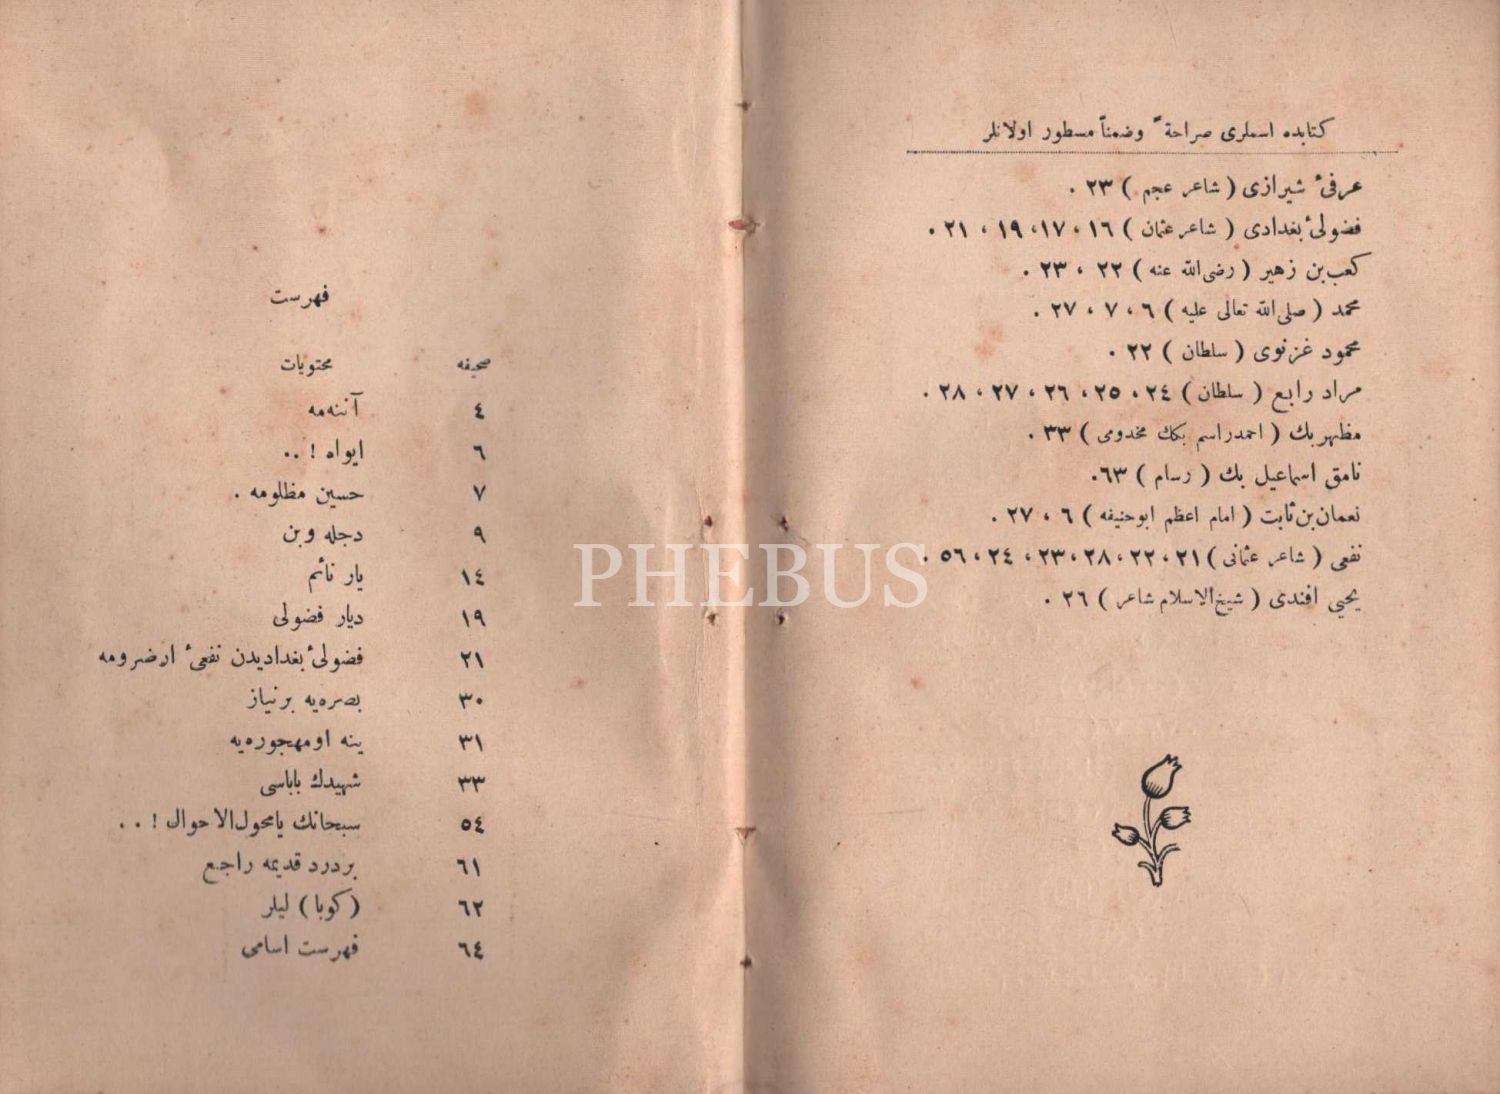 كتابده اسملری صراحةً وضمناً مسطور اولانلر
عرفیٔ شیرازی ( شاعر عجم ) ٢٣ .
فضولیٔ بغدادی ( شاعر عثمان ) ١٦ ، ١٧، ١٩ ، ٢١ .
كعب بن زهیر ( رضی الله عنه ) ٢٢ ، ٢٣ .
محمد ( صلی الله تعالی علیه ) ٦ ، ٧ ، ٢٧ .
محمود غزنوی ( سلطان ) ٢٢ .
مراد رابع ( سلطان ) ٢٤ ، ٢٥ ، ٢٦ ، ٢٧ ، ٢٨ .
مظهر بك ( احمد راسم بكك مخدومی ) ٣٣ .
نامق اسماعیل بك ( رسام ) ٦٣.
نعمان بن ثابت ( امام اعظم ابوحنیفه ) ٦ ، ٢٧ .
نفعی ( شاعر عثمانی ) ٢١ ، ٢٢ ، ٢٨ ، ٢٣ ، ٢٤ ، ٥٦ .
یحیی افندی ( شیخ الاسلام شاعر ) ٢٦ .
فهرست
صحیفه محتویات
٤ آننه مه
٦ ایواه ! ..
٧ حسین مظلومه .
٩ دجله وبن
١٤ یار نائم
١٩ دیار فضولی
٢١ فضولیٔ بغدادیدن نفعیٔ ارضرومه
٣٠ بصره یه بر نیاز
٣١ ینه او مهجوره یه
٣٣ شهیدك باباسی
٥٤ سبحانك یا محول الاحوال ! . .
٦١ بر درد قدیمه راجع
٦٢ (كوبا) لیلر
٦٤ فهرست اسامی
PHEBUS